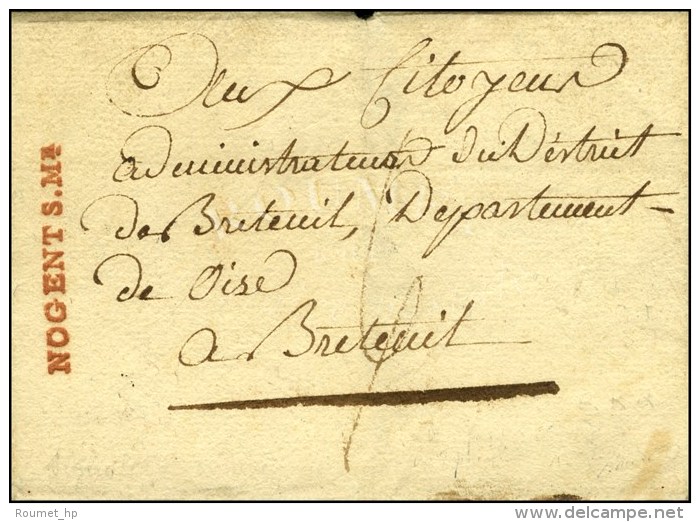 NOGENT S. Mⁿ
Aux Citoyens
administrateurs du District
de Breteuil, Departement
de Oise
a Breteuil
Roumet_hp
www.delcampe.net